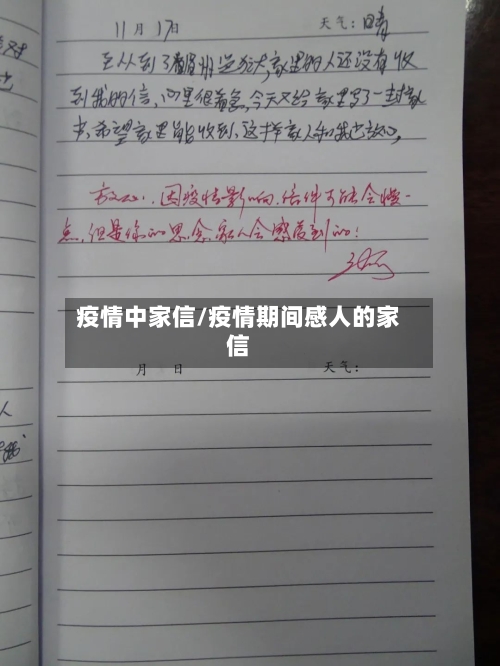 11月17日 天气：晴
自从到了眉州监狱，家里的人还没有收
到我的信，心里很着急，今天又给家里写了一封家
书，希望家里能收到，这样家人和我也放心。
放心，因疫情影响，信件可能会慢一
点，但是你的思念，家人会感受到的！
疫情中家信/疫情期间感人的家
信
月 日 天气：
人